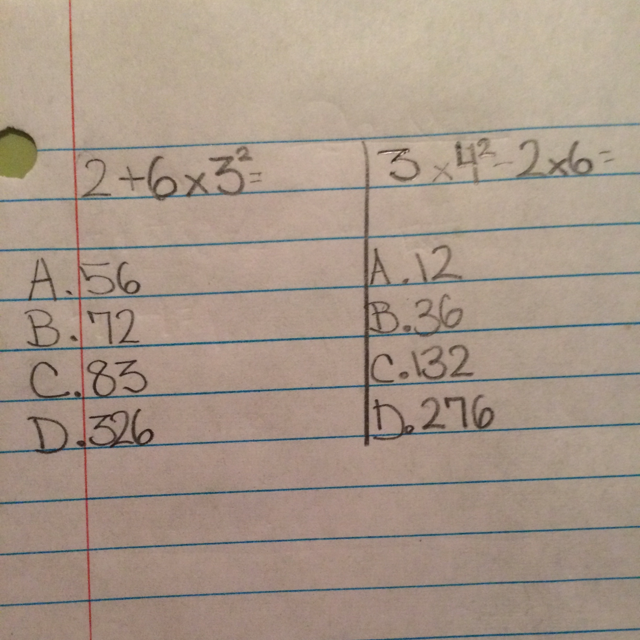 2+6×3²=
A. 56
B. 72
C. 83
D. 326
3×4²-2×6=
A. 12
B. 36
C. 132
D. 276